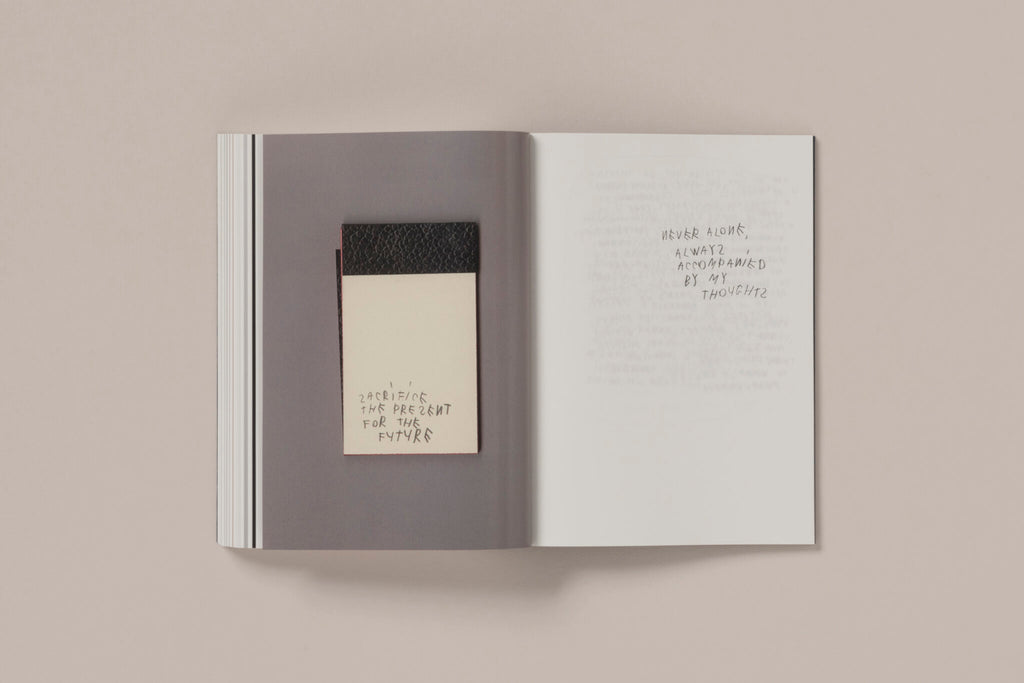 SACRIFICE
THE PRESENT
FOR THE
FUTURE
NEVER ALONE,
ALWAYS
ACCOMPANIED
BY MY
THOUGHTS